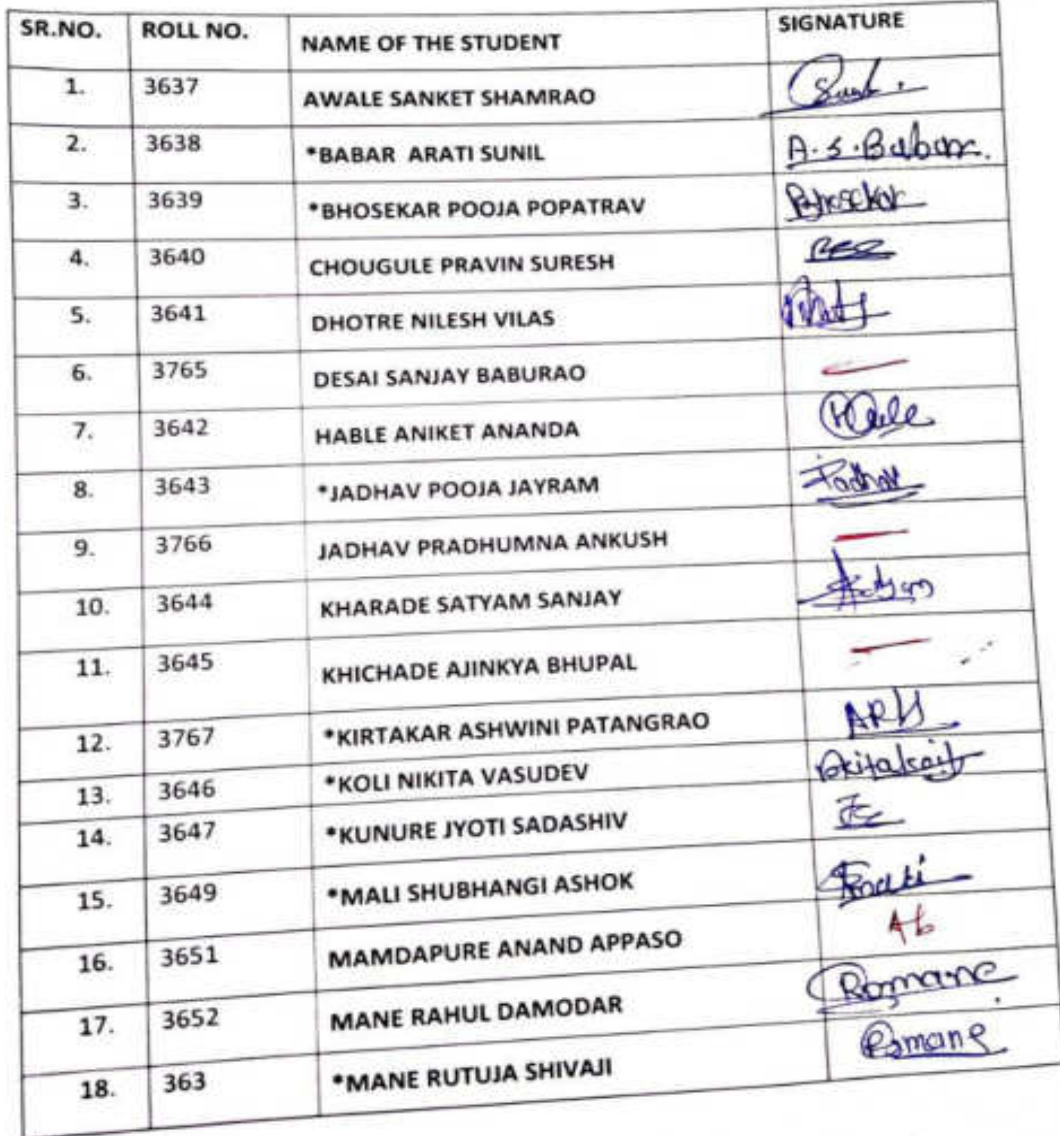 SR.NO. ROLL NO. NAME OF THE STUDENT SIGNATURE
1. 3637 AWALE SANKET SHAMRAO
2. 3638 *BABAR ARATI SUNIL A.S.Babar.
3. 3639 *BHOSEKAR POOJA POPATRAV Bhosekar
4. 3640 CHOUGULE PRAVIN SURESH
5. 3641 DHOTRE NILESH VILAS
6. 3765 DESAI SANJAY BABURAO
7. 3642 HABLE ANIKET ANANDA
8. 3643 *JADHAV POOJA JAYRAM Jadhav
9. 3766 JADHAV PRADHUMNA ANKUSH
10. 3644 KHARADE SATYAM SANJAY
11. 3645 KHICHADE AJINKYA BHUPAL
12. 3767 *KIRTAKAR ASHWINI PATANGRAO
13. 3646 *KOLI NIKITA VASUDEV
14. 3647 *KUNURE JYOTI SADASHIV
15. 3649 *MALI SHUBHANGI ASHOK
16. 3651 MAMDAPURE ANAND APPASO Ab
17. 3652 MANE RAHUL DAMODAR Rdmane
18. 363 *MANE RUTUJA SHIVAJI Rsmane